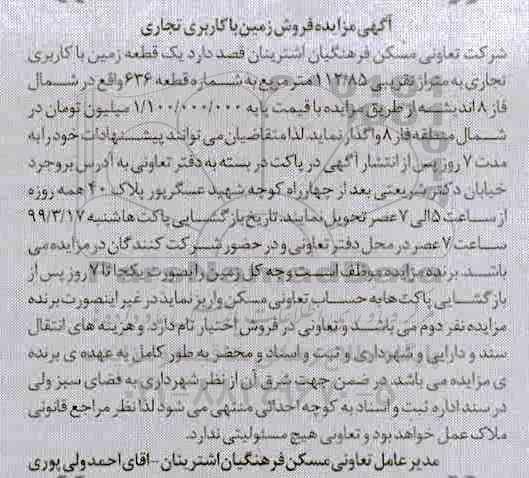 آگهی مزایده فروش زمین با کاربری تجاری
شرکت تعاونی مسکن فرهنگیان اشترینان قصد دارد یک قطعه زمین با کاربری
تجاری به متراژ تقریبی ۱۱۲/۸۵ متر مربع به شماره قطعه ۶۳۶ واقع در شمال
فاز ۸ اندیشه از طریق مزایده با قیمت پایه ۱/۱۰۰/۰۰۰/۰۰۰ میلیون تومان در
شمال منطقه فاز ۸ واگذار نماید. لذا متقاضیان می توانند پیشنهادات خود را به
مدت ۷ روز پس از انتشار آگهی در پاکت در بسته به دفتر تعاونی به آدرس بروجرد
خیابان دکتر شریعتی بعد از چهارراه کوچه شهید عسگرپور پلاک ۴۰ همه روزه
از ساعت ۵ الی ۷ عصر تحویل نمایند. تاریخ بازگشایی پاکت ها شنبه ۹۹/۳/۱۷
ساعت ۷ عصر در محل دفتر تعاونی و در حضور شرکت کنندگان در مزایده می
باشد. برنده مزایده موظف است وجه کل زمین را بصورت یکجا تا ۷ روز پس از
بازگشایی پاکت ها به حساب تعاونی مسکن واریز نماید در غیر اینصورت برنده
مزایده نفر دوم می باشد و تعاونی در فروش اختیار تام دارد. و هزینه های انتقال
سند و دارایی و شهرداری و ثبت و اسناد و محضر به طور کامل به عهده ی برنده
ی مزایده می باشد. در ضمن جهت شرق آن از نظر شهرداری به فضای سبز ولی
در سند اداره ثبت و اسناد به کوچه احداثی منتهی می شود لذا نظر مراجع قانونی
ملاک عمل خواهد بود و تعاونی هیچ مسئولیتی ندارد.
مدیر عامل تعاونی مسکن فرهنگیان اشترینان - اقای احمد ولی پوری